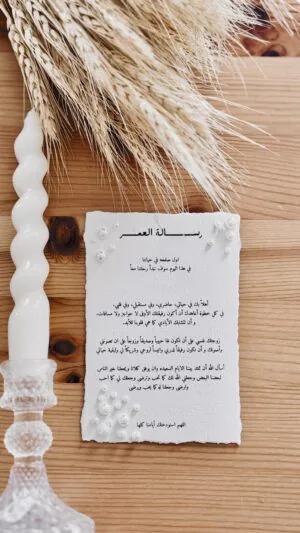 رسالة العمر
اول صفحه في حياتنا
في هذا اليوم سوف تبدأ رحلتنا معاً
أهلاً بك في حياتي، حاضري، وفي مستقبلي، وفي قلبي.
في كل خطوة أعاهدك أن أكون رفيقتك الأوفى لا حواجز ولا مسافات،
و أن تتشابك الأيادي كما هي قلوبنا للأبد.
زوجتك نفسي على أن تكون لنا حبيباً وصديقاً وزوجاً على ان تصونني
وأصونك، و أن تكون رفيقاً لدربي وانيساً لروحي وشريكاً لي وليقية حياتي
أسأل الله أن تمتد بيننا الايام السعيده وان يوفق كلانا ويجعلنا خير الناس
لبعضنا البعض ويجعلني الله لك كما تحب وترضى ويجعلك لي كما احب
وارضى وجعلنا له كما يحب ويرضى
اللهم استودعتك أيامنا كلها